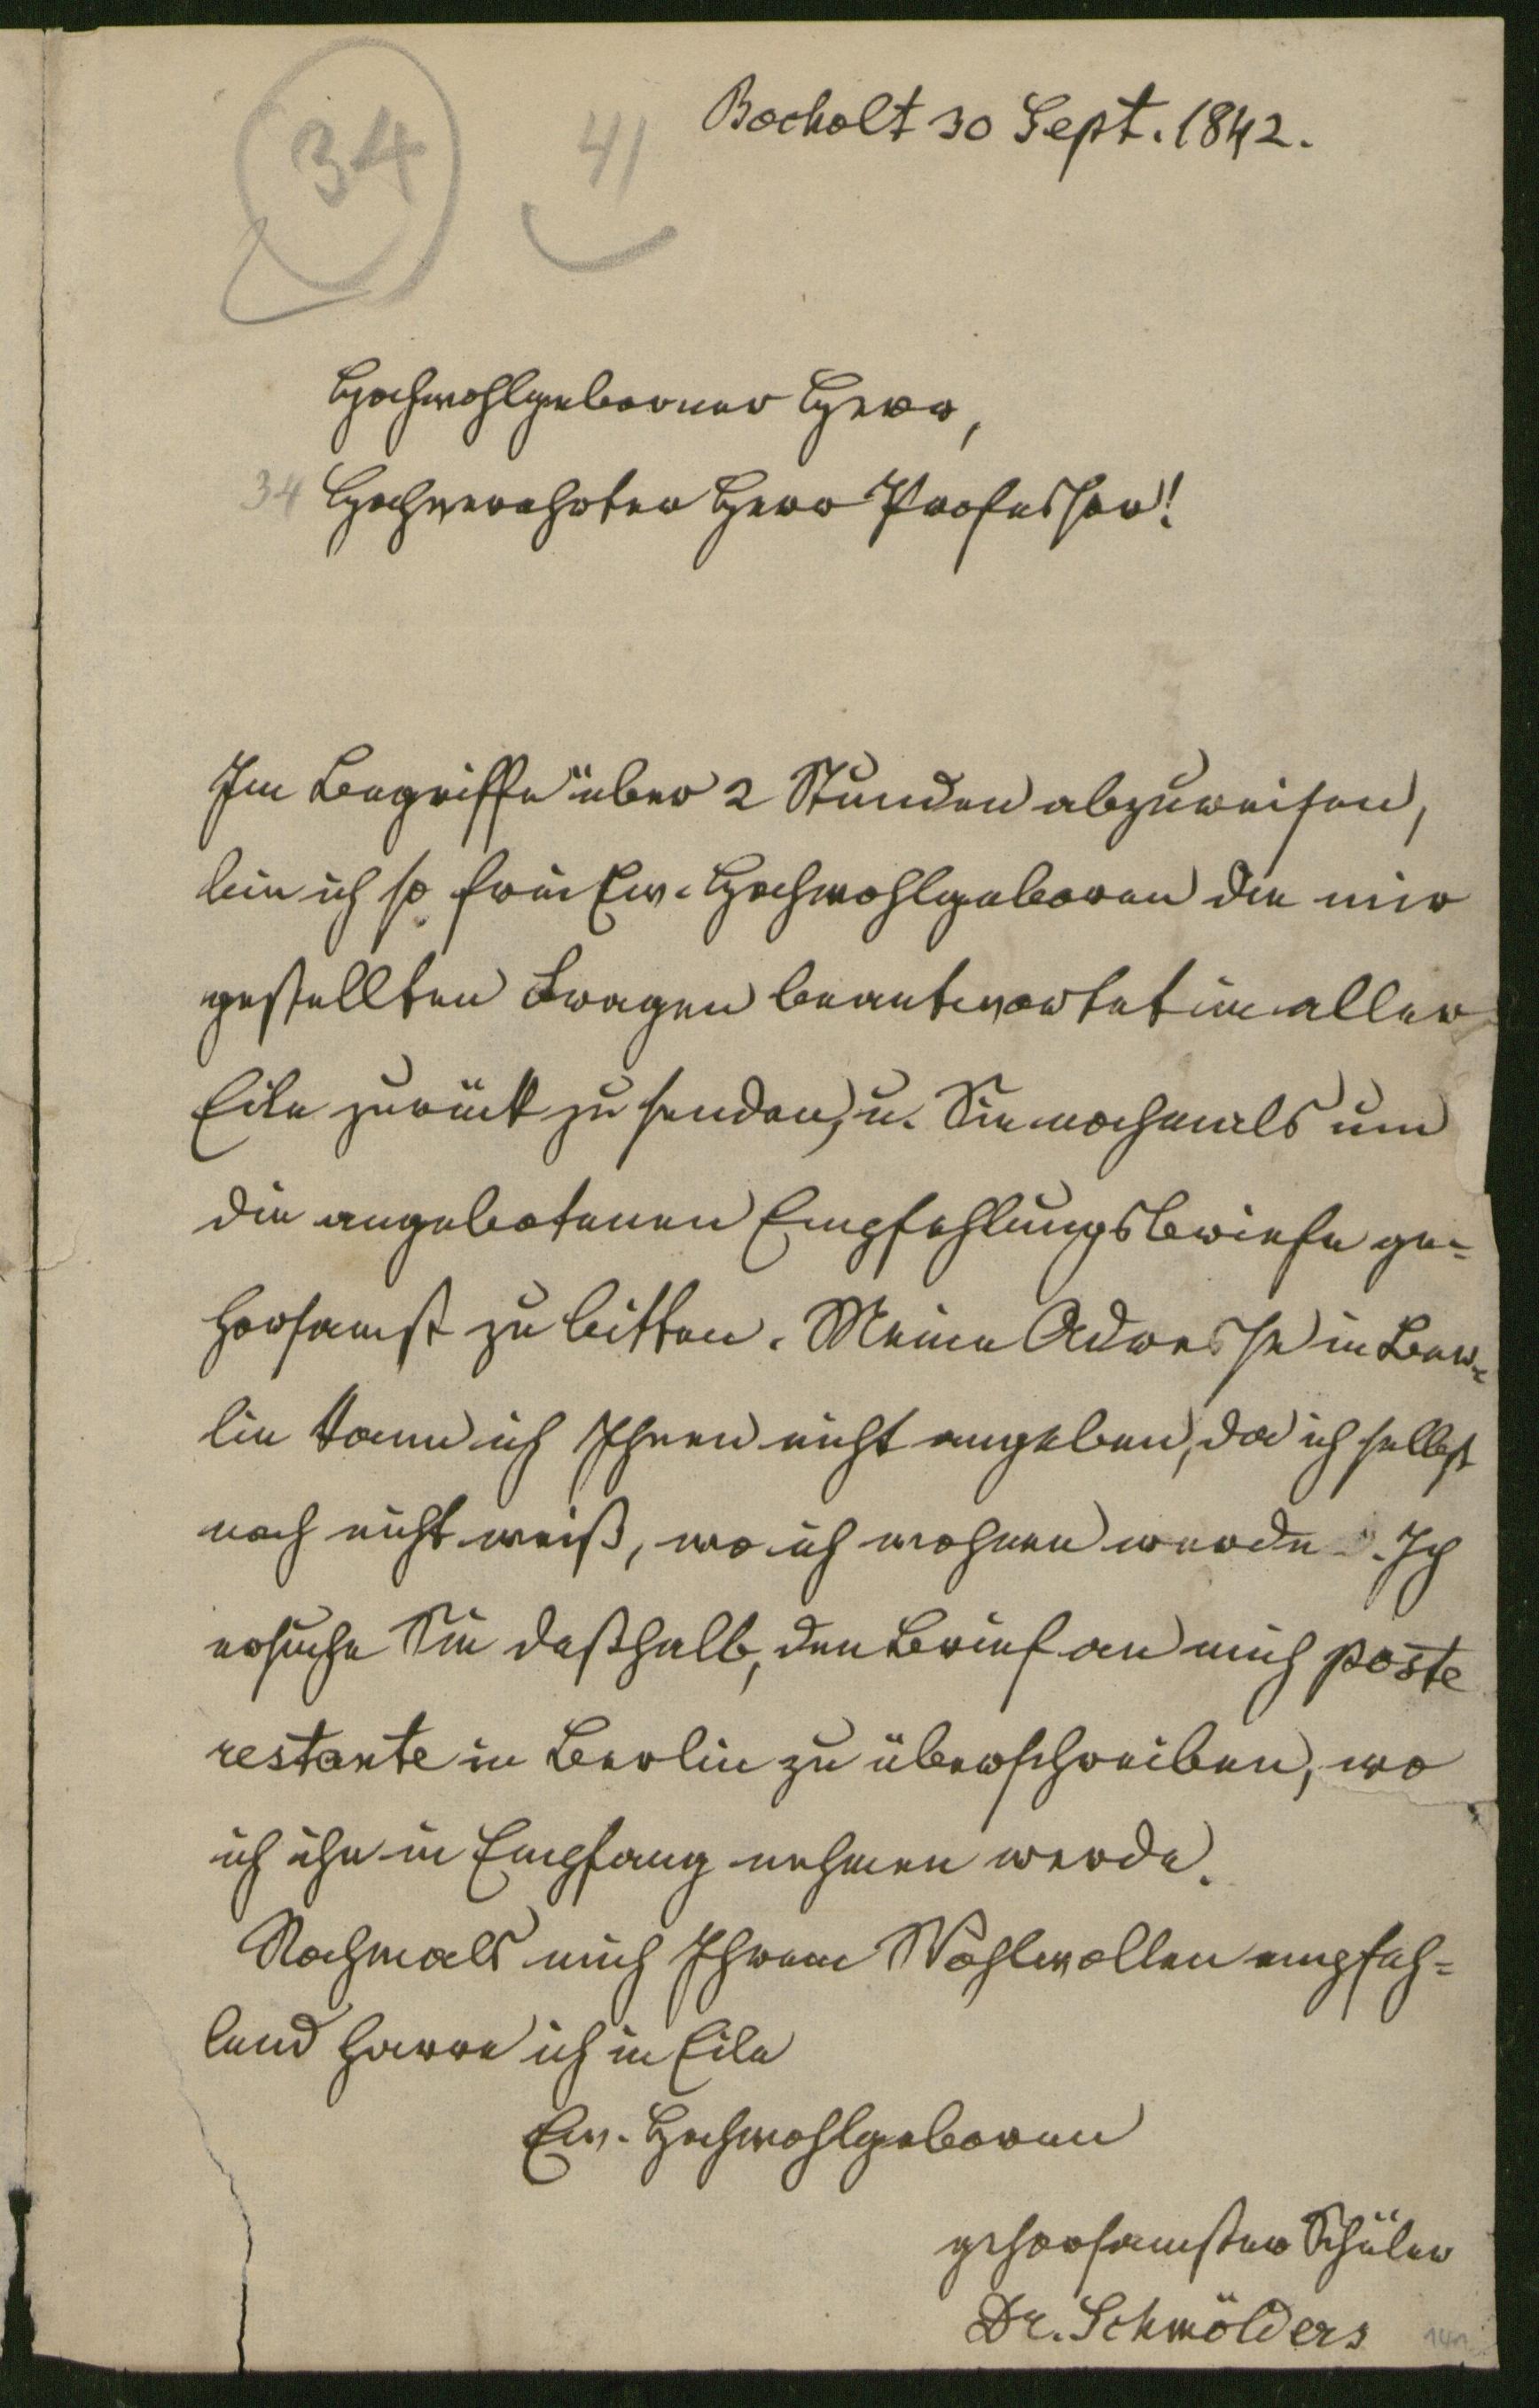 34
41
Bocholt 30 Sept. 1842.
Hochwohlgeborner Herr,
34 Hochverehrter Herr Professor!
Im Begriffe über 2 Stunden abzureisen,
bin ich so frei Ew. Hochwohlgeboren die mir
gestellten Fragen beantwortet in aller
Eile zurück zu senden, u. Sie nochmals um
die angebotenen Empfehlungsbriefe ge-
horsamst zu bitten. Meine Adresse in Ber-
lin kann ich Ihnen nicht angeben, da ich selbst
noch nicht weiß, wo ich wohnen werde. Ich
ersuche Sie deßhalb, den Brief an mich poste
restante in Berlin zu überschreiben, wo
ich ihn in Empfang nehmen werde.
Nochmals mich Ihrem Wohlwollen empfeh-
lend harre ich in Eile
Ew. Hochwohlgeboren
gehorsamster Schüler
Dr. Schmölders
141